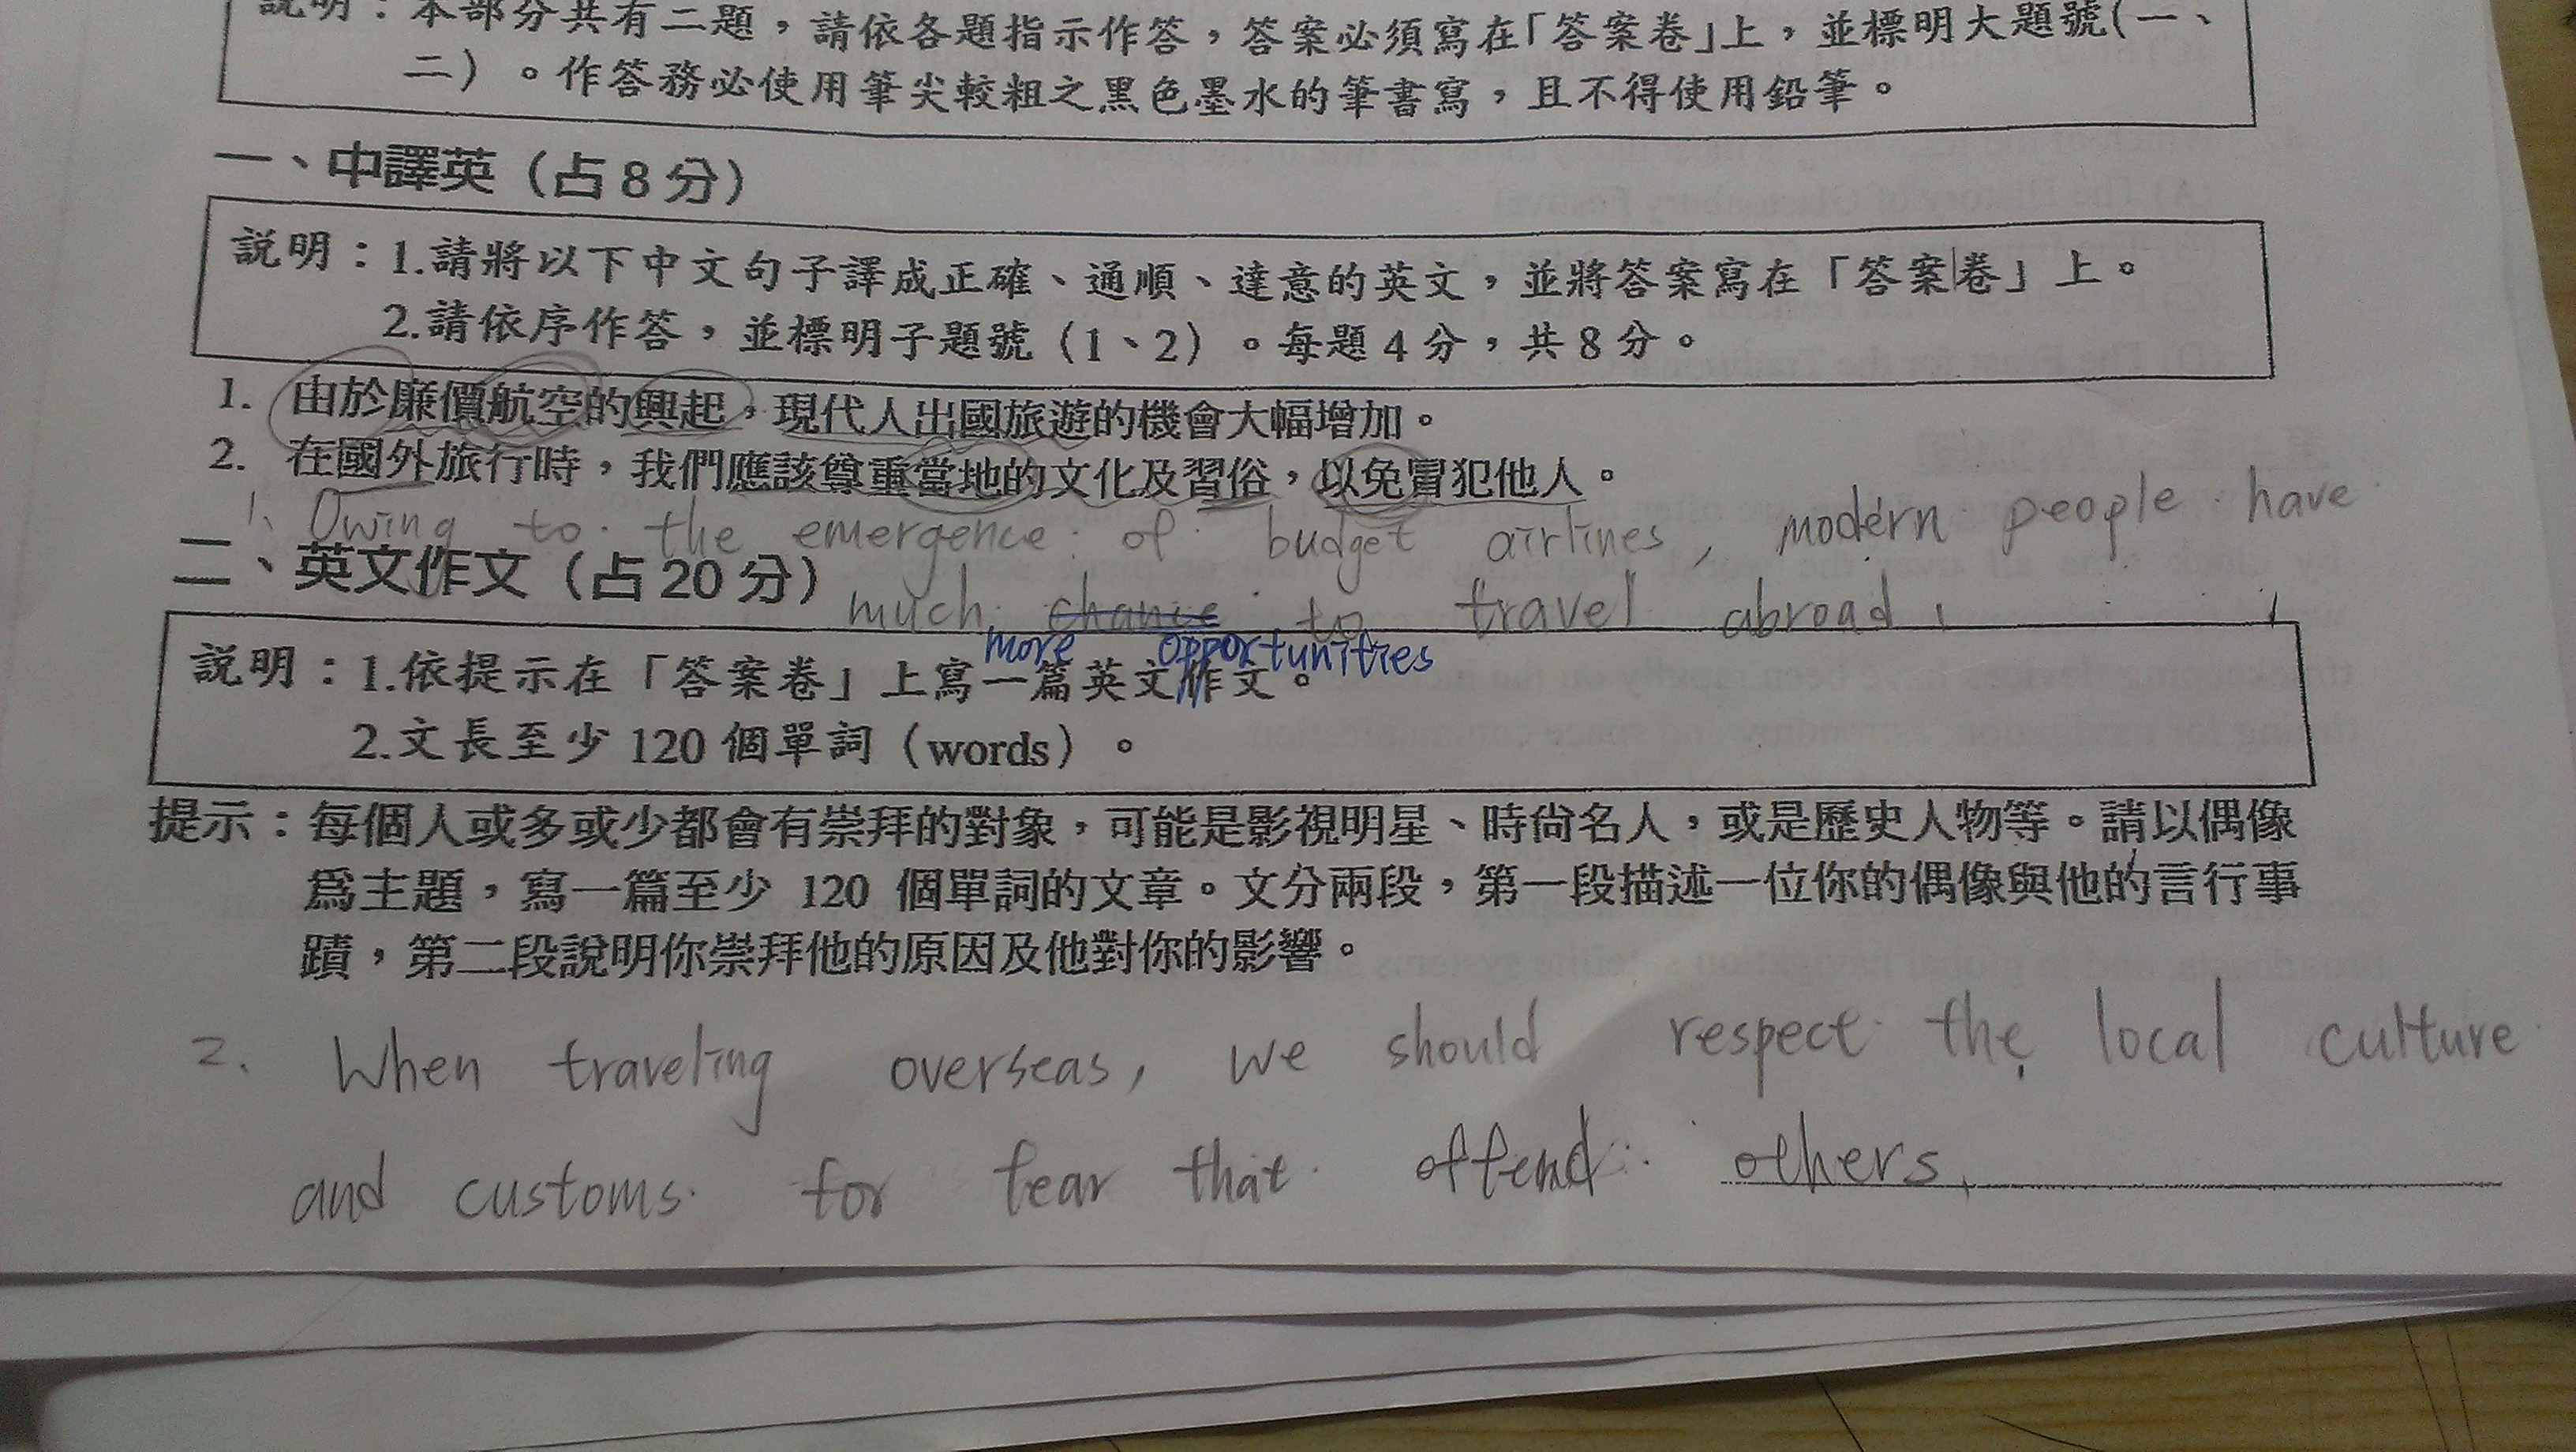 說明：本部分共有二題，請依各題指示作答，答案必須寫在「答案卷」上，並標明大題號(一、
二）。作答務必使用筆尖較粗之黑色墨水的筆書寫，且不得使用鉛筆。
一、中譯英（占8分）
說明：1.請將以下中文句子譯成正確、通順、達意的英文，並將答案寫在「答案卷」上。
2.請依序作答，並標明子題號（1、2）。每題4分，共8分。
1. 由於廉價航空的興起，現代人出國旅遊的機會大幅增加。
2. 在國外旅行時，我們應該尊重當地的文化及習俗，以免冒犯他人。
1、Owing to the emergence of budget airlines, modern people have
二、英文作文（占20分）
much chance to travel abroad.
more opportunities
說明：1.依提示在「答案卷」上寫一篇英文作文。
2.文長至少120個單詞（words）。
提示：每個人或多或少都會有崇拜的對象，可能是影視明星、時尚名人，或是歷史人物等。請以偶像
為主題，寫一篇至少 120 個單詞的文章。文分兩段，第一段描述一位你的偶像與他的言行事
蹟，第二段說明你崇拜他的原因及他對你的影響。
2. When traveling overseas, we should respect the local culture
and customs for fear that offend others.